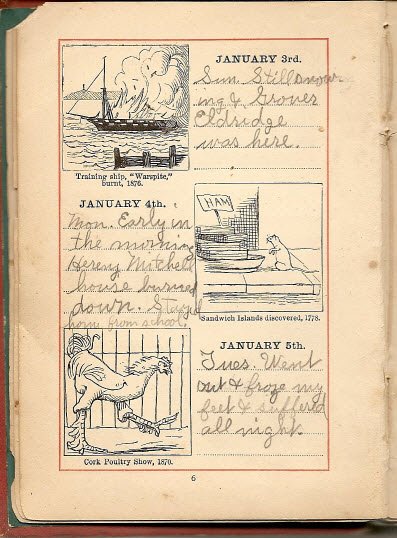 JANUARY 3rd.
Sun. Still snow-
ing & Grover
Eldridge
was here.
Training ship, "Warspite,"
burnt, 1876.
JANUARY 4th.
Mon. Early in
the morning
Hereny Mitchell
house burned
down. Stayed
home from school.
HAM
Sandwich Islands discovered, 1778.
JANUARY 5th.
Tues. Went
out & froze my
feet & suffered
all night.
Cork Poultry Show, 1870.
6